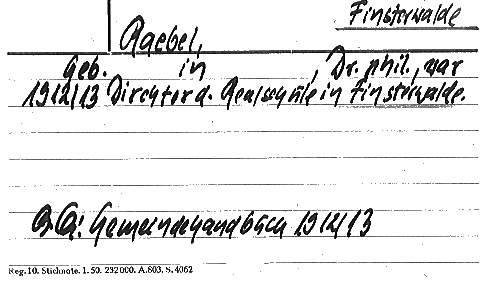 Finsterwalde
Raebel,
geb. in , Dr. phil., war
1912/13 Direktor d. Realschule in Finsterwalde.
B. Q.: Gemeindehandbuch 1912/13
Reg. 10. Stichnote. 1. 50. 232000. A. 803. S. 4062